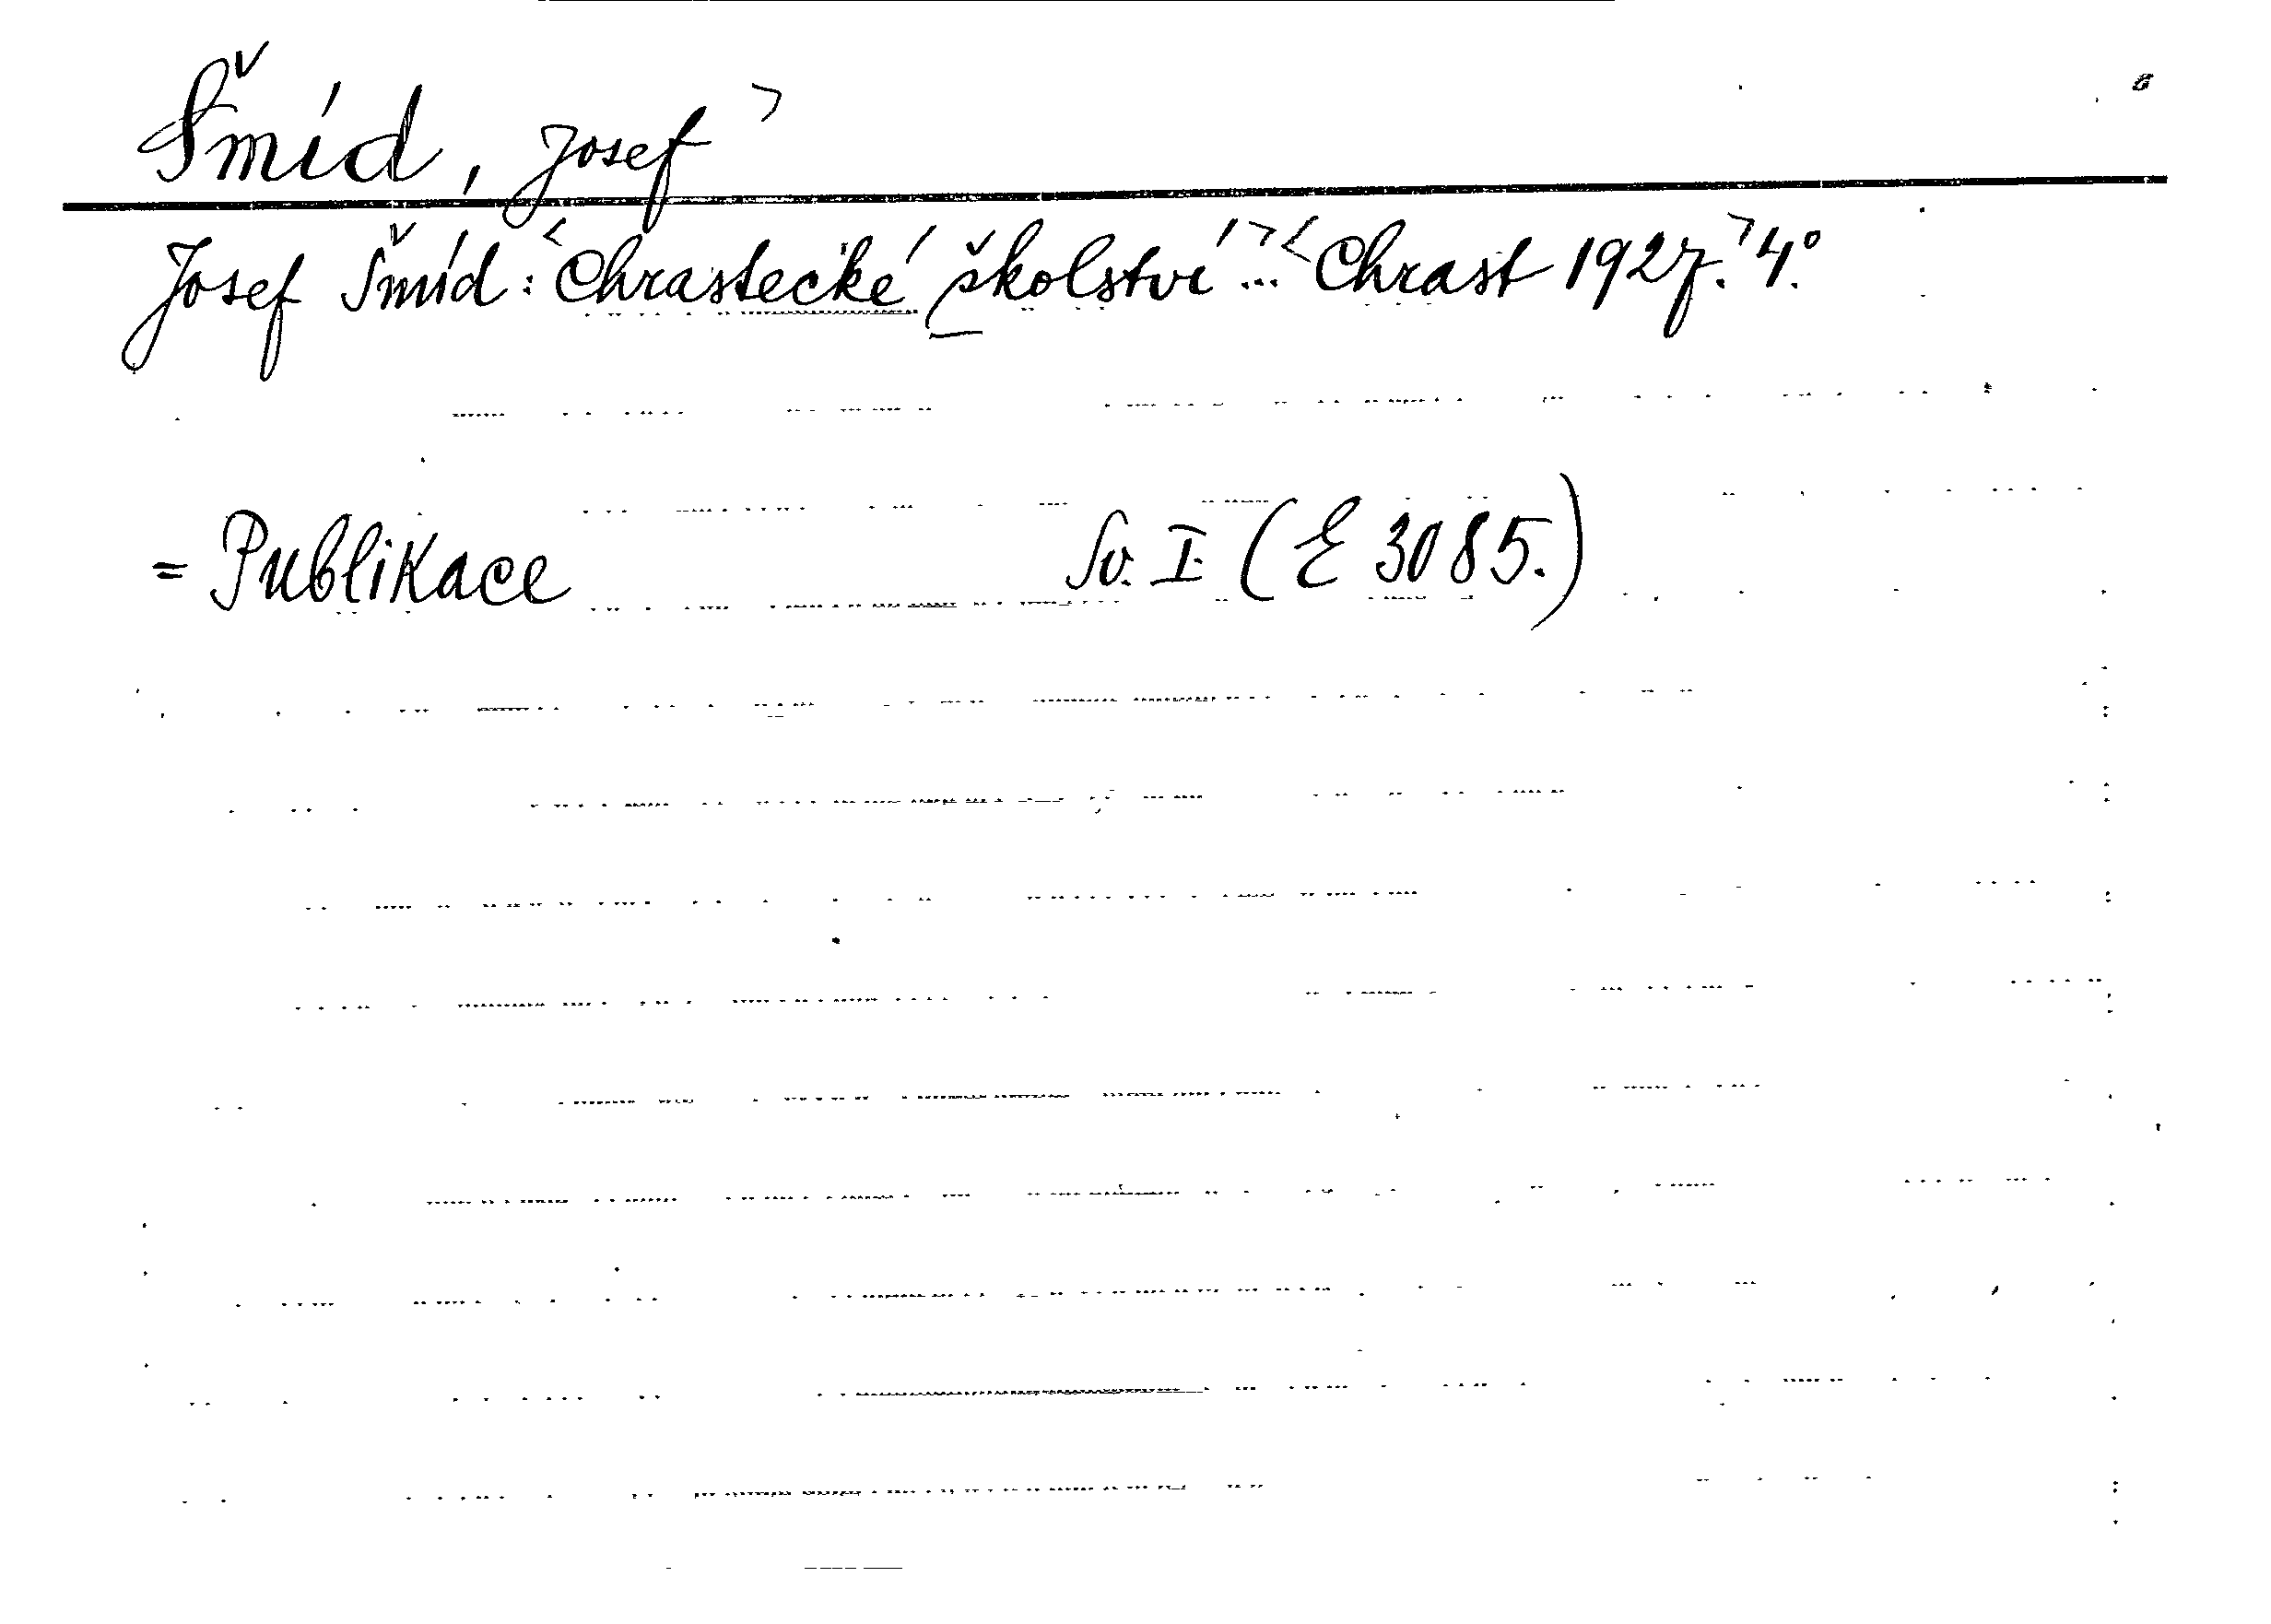 Šmíd, Josef >
Josef Šmíd: <Chrastecké školství...> <Chrast 1927.> 4°.
= Publikace Sv. I. (E 3085.)